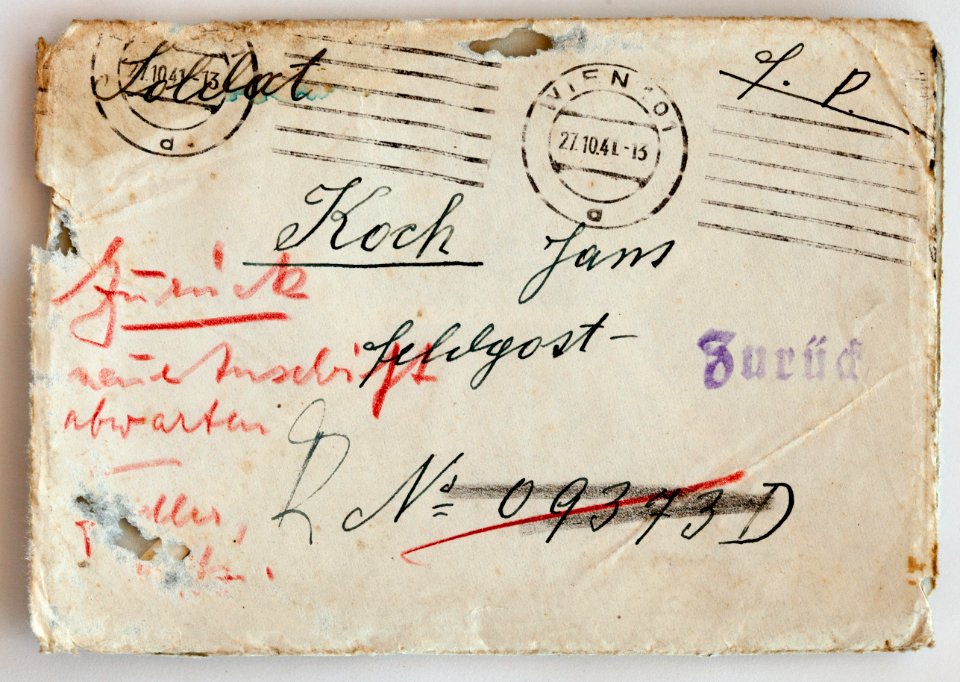 27.10.41-13
a
Soldat
WIEN 101
27.10.41-13
a
F. P.
Koch Hans
Zurück
neue Anschrift
abwarten
Feldpost-
Zurück
No 09373 D